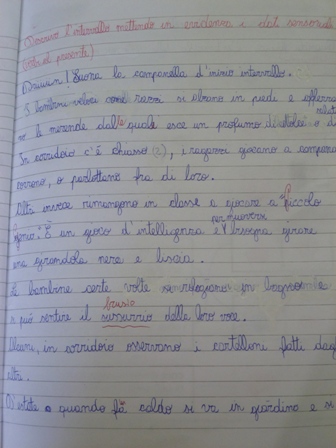 Descrivo l'intervallo mettendo in evidenza i dati sensoriali
(uso il presente)
Driiiin! Suona la campanella d'inizio intervallo.
I bambini veloci come razzi si alzano in piedi e afferra
no le merende dalle quali esce un profumo di
In corridoio c'è chiasso, i ragazzi giocano a campana
o parlottano fra di loro.
Altri invece rimangono in classe a giocare a "Piccolo
È un gioco d'intelligenza e per muoversi bisogna girare
una girandola nera e liscia.
Le bambine certe volte in bagno e
si può sentire il sussurrio brusio delle loro voci.
Alcuni, in corridoio osservano i cartelloni fatti dagli
altri.
D'estate o quando fa caldo si va in giardino e si